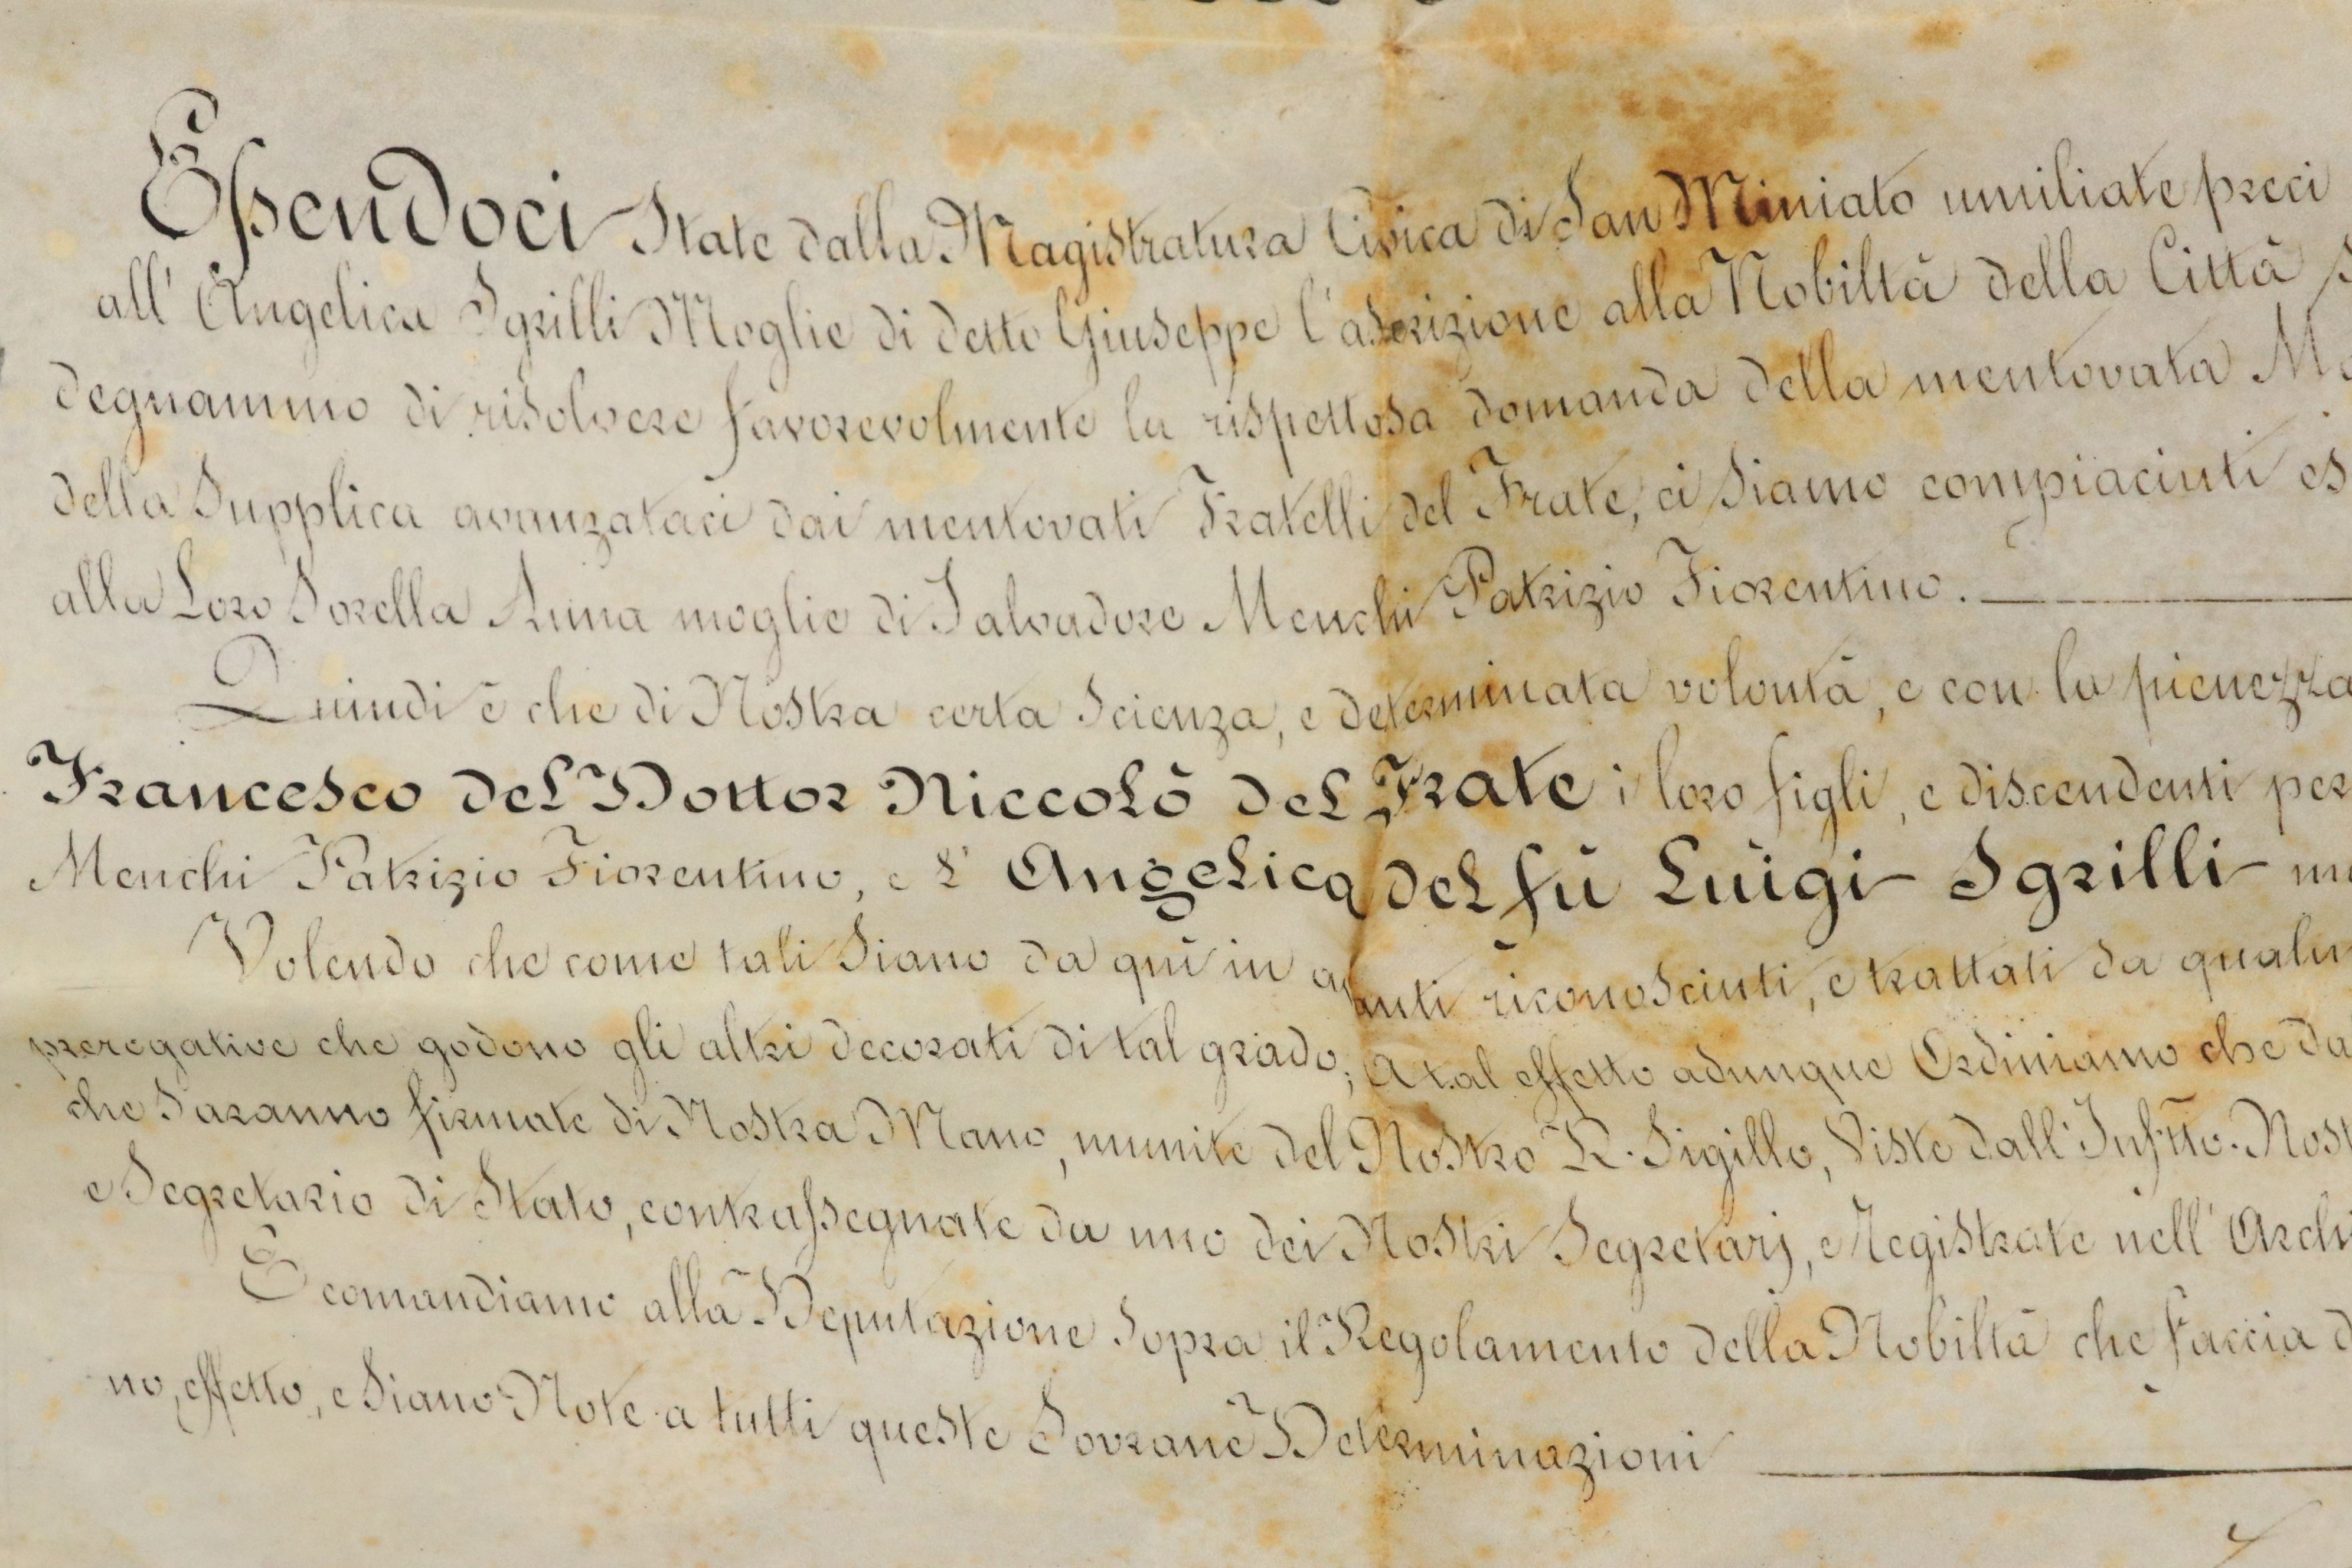 Essendoci State dalla Magistratura Civica di San Miniato umiliate preci
all' Angelica Sgrilli Moglie di detto Giuseppe l'ascrizione alla Nobiltà della Città
degnammo di risolvere favorevolmente la rispettosa domanda della mentovata
della Supplica avanzataci dai mentovati Fratelli del Frate, ci Siamo compiaciuti
alla Loro Sorella Anna moglie di Salvadore Menchi Patrizio Fiorentino.
Quindi è che di Nostra certa Scienza, e determinata volontà, e con la pienezza
Francesco del Dottor Niccolò del Frate i loro figli, e discendenti per
Menchi Patrizio Fiorentino, e l' Angelica del fù Luigi Sgrilli
Volendo che come tali Siano da quì in avanti riconosciuti, e trattati da
preregative che godono gli altri decorati di tal grado; A tal effetto adunque Ordiniamo che da
che Saranno firmate di Nostra Mano, munite del Nostro R. Sigillo, Viste dall' Infrtto. Nost
e Segretario di Stato, contrassegnate da uno dei Nostri Segretarj, e Registrate nell' Archi
E comandiamo alla Deputazione Sopra il Regolamento della Nobiltà che faccia d
no, effetto, e Siano Note a tutti queste Sovrane Determinazioni